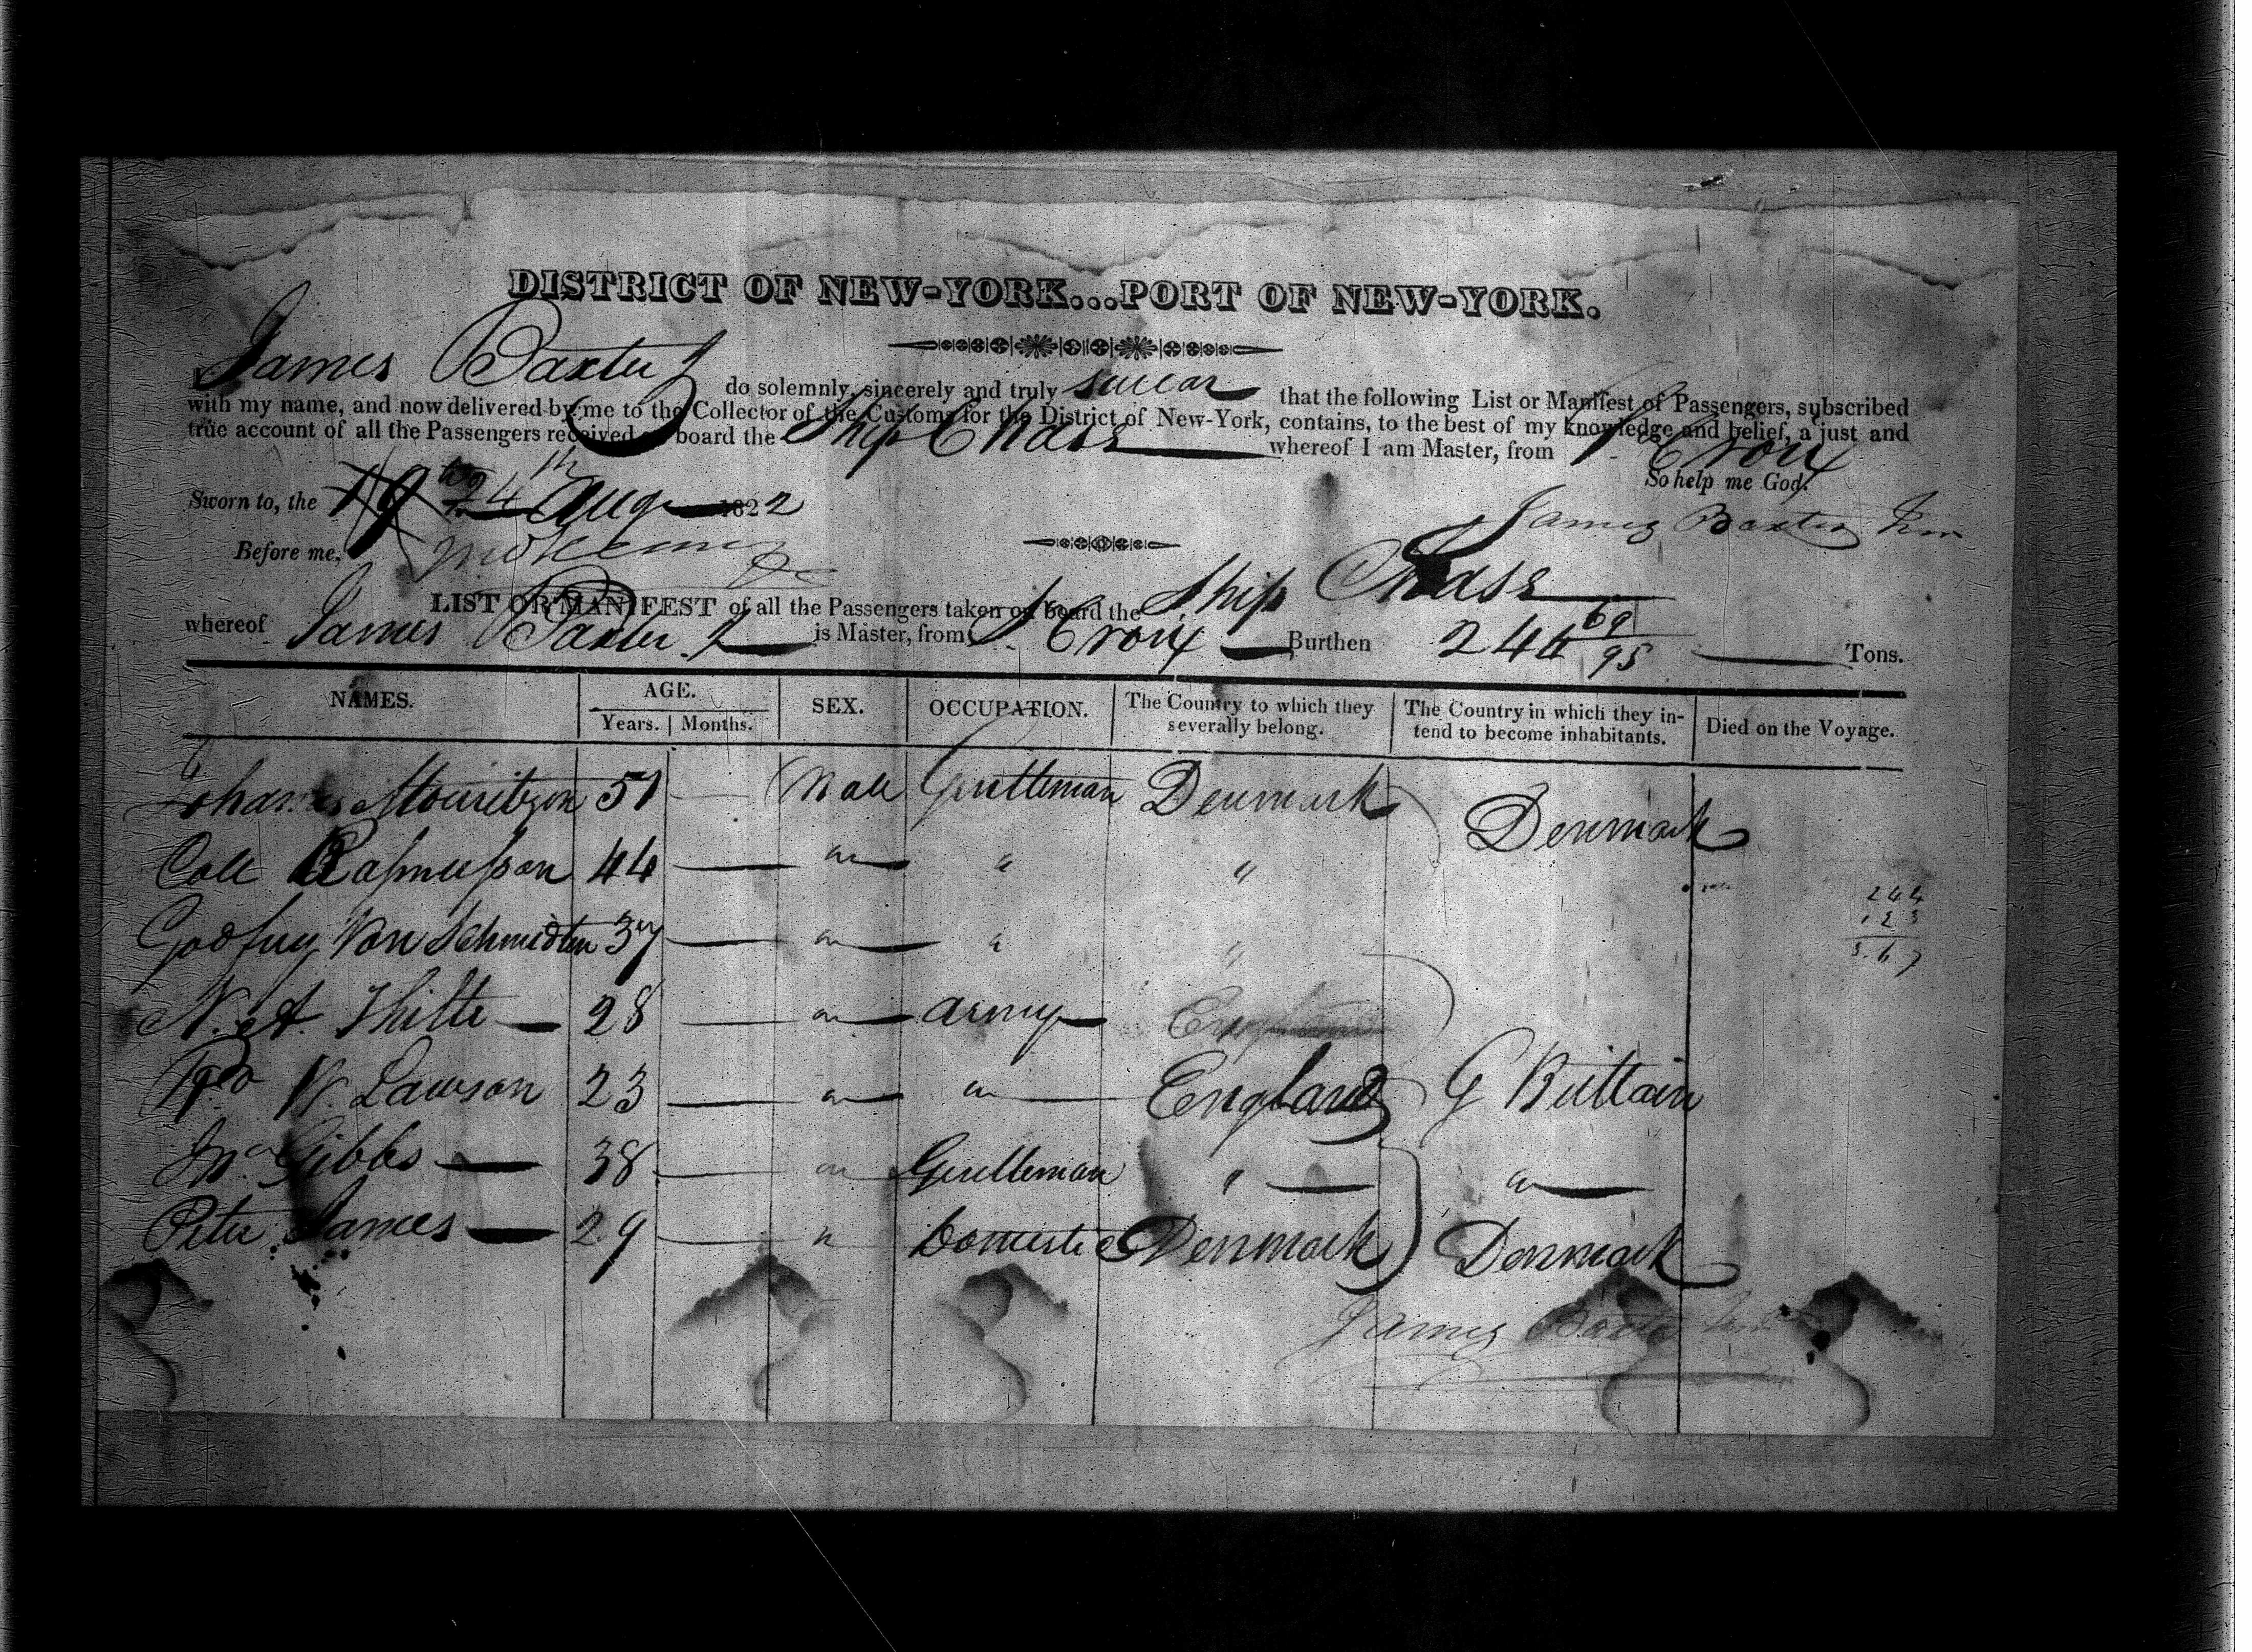 DISTRICT OF NEW-YORK...PORT OF NEW-YORK.
James Baxter J do solemnly, sincerely and truly swear that the following List or Manifest of Passengers, subscribed
with my name, and now delivered by me to the Collector of the Customs for the District of New-York, contains, to the best of my knowledge and belief, a just and
true account of all the Passengers received on board the Ship Chase whereof I am Master, from St Croix
So help me God.
Sworn to, the 24th Aug 1822
James Baxter Jun
Before me,
LIST OR MANIFEST of all the Passengers taken on board the Ship Chase
whereof James Baxter J is Master, from St Croix Burthen 244 69/95 Tons.
NAMES. AGE. SEX. OCCUPATION. The Country to which they severally belong. The Country in which they intend to become inhabitants. Died on the Voyage.
Years. Months.
Johannes Mouritzon 51 Male Gentleman Denmark Denmark
Cole Rasmusson 44 " " "
Godfrey Von Schmidten 37 " " "
N. A. Thilte 28 " Army
W. Lawson 23 " " England G Brittain
Jno Gibbs 38 " Gentleman " "
Peter James 29 " Domestic Denmark Denmark
244
123
367
James Baxter